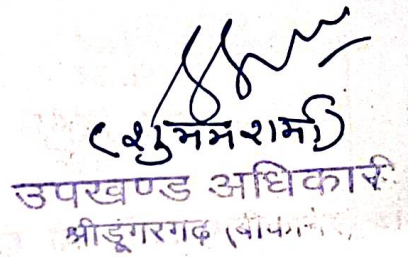 (शुभम शर्मा)
उपखण्ड अधिकारी
श्रीडूंगरगढ़ (बीकानेर